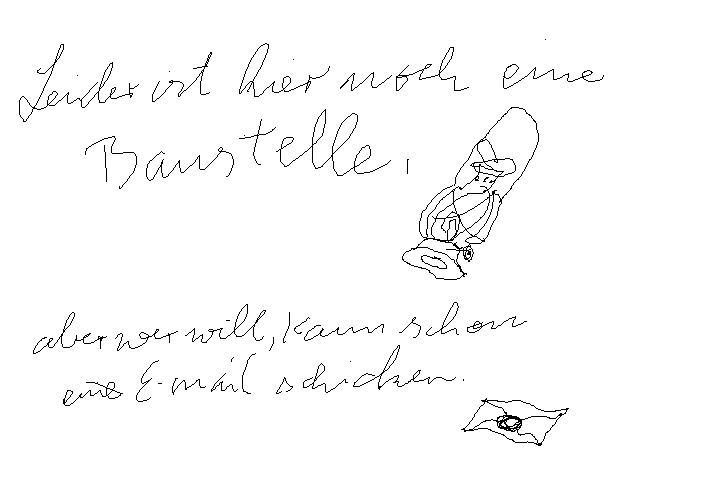 Leider ist hier noch eine
Baustelle,
aber wer will, kann schon
eine E-mail schicken.